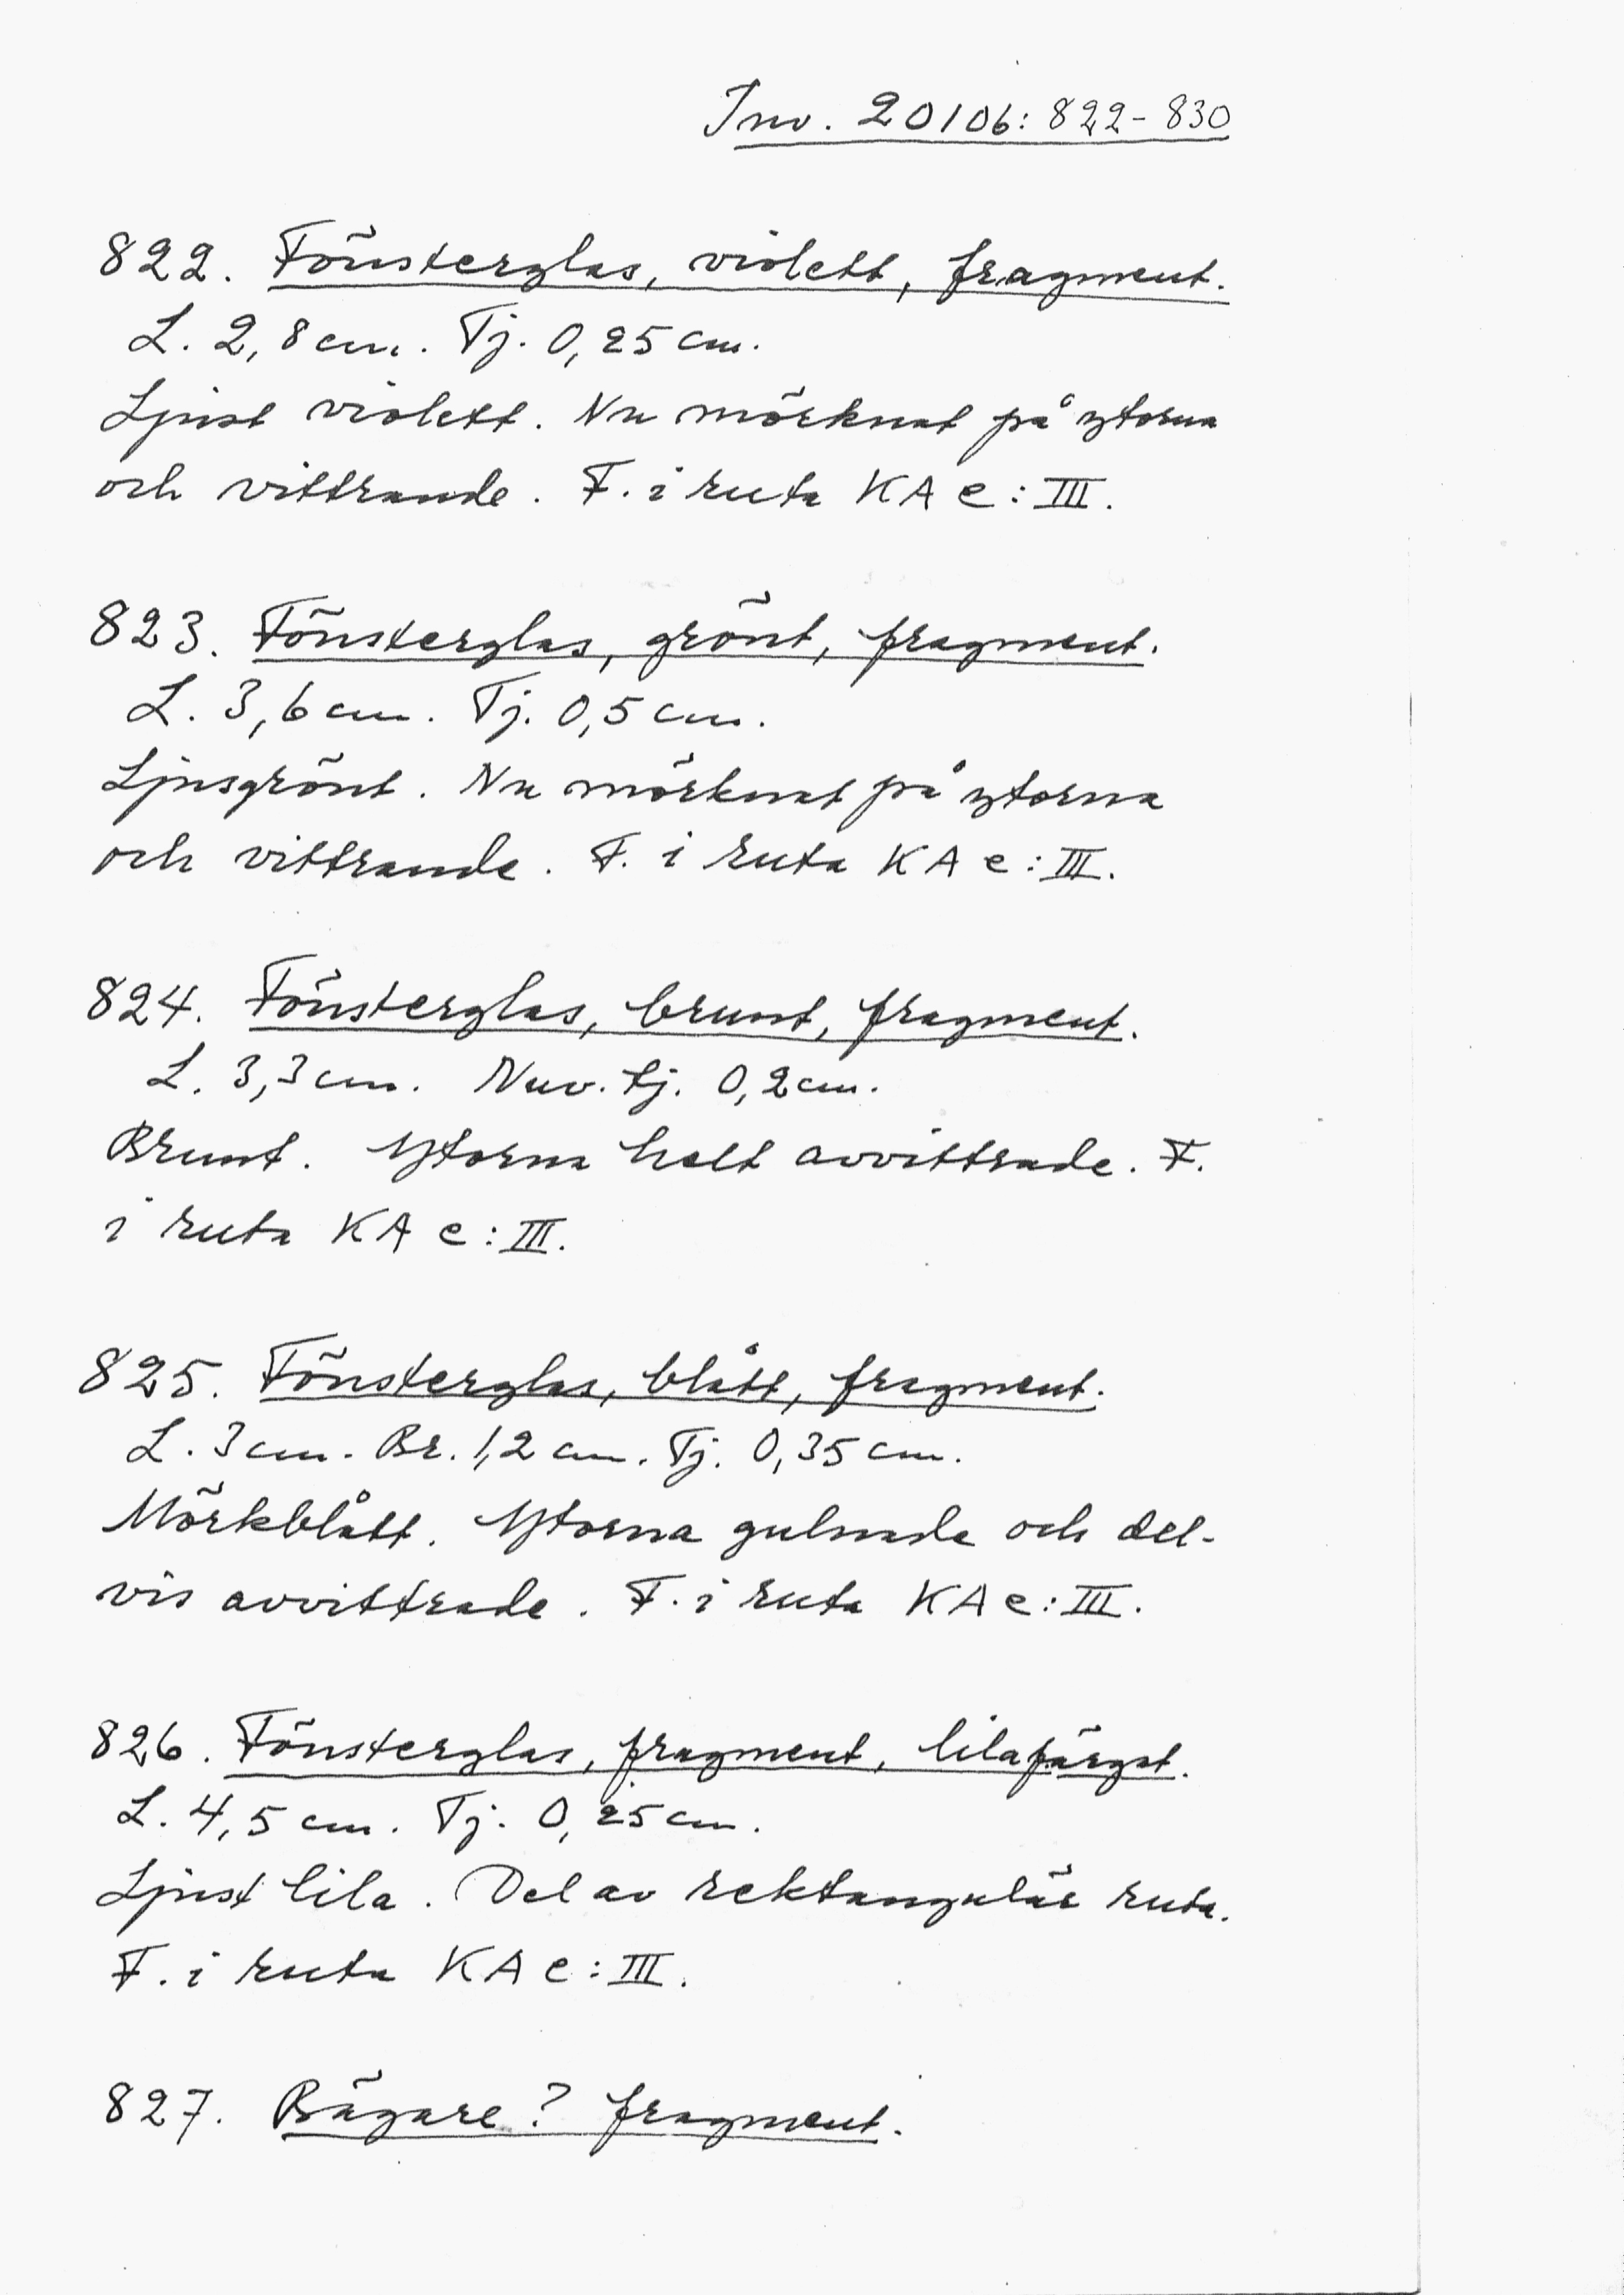 Inv. 20106: 822-830
822. Fönsterglas, violett, fragment.
L. 2,8 cm. Tj. 0,25 cm.
Ljust violett. Nu mörknat på ytorna
och vittrande. F. i ruta KA e: III.
823. Fönsterglas, grönt, fragment.
L. 3,6 cm. Tj. 0,5 cm.
Ljusgrönt. Nu mörknat på ytorna
och vittrande. F. i ruta KA e: III.
824. Fönsterglas, brunt, fragment.
L. 3,3 cm. Nuv. tj. 0,2 cm.
Brunt. Ytorna helt avvittrade. F.
i ruta KA e: III.
825. Fönsterglas, blått, fragment.
L. 3 cm. Br. 1,2 cm. Tj. 0,35 cm.
Mörkblått. Ytorna gulnade och del-
vis avvittrade. F. i ruta KA e: III.
826. Fönsterglas, fragment, lilafärgat.
L. 4,5 cm. Tj. 0,25 cm.
Ljust lila. Del av rektangulär ruta.
F. i ruta KA e: III.
827. Bägare? fragment.